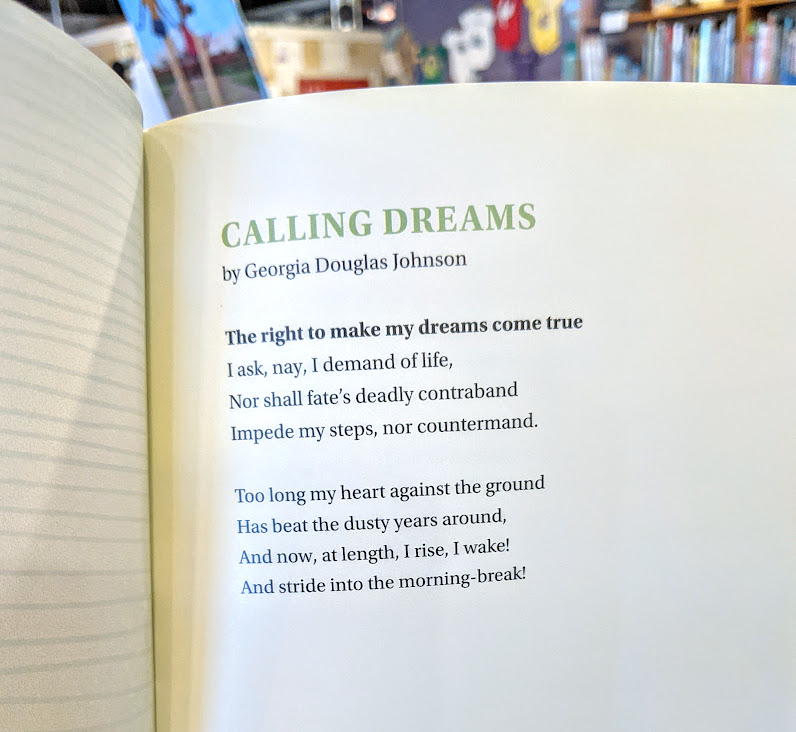 CALLING DREAMS
by Georgia Douglas Johnson
The right to make my dreams come true
I ask, nay, I demand of life,
Nor shall fate's deadly contraband
Impede my steps, nor countermand.
Too long my heart against the ground
Has beat the dusty years around,
And now, at length, I rise, I wake!
And stride into the morning-break!